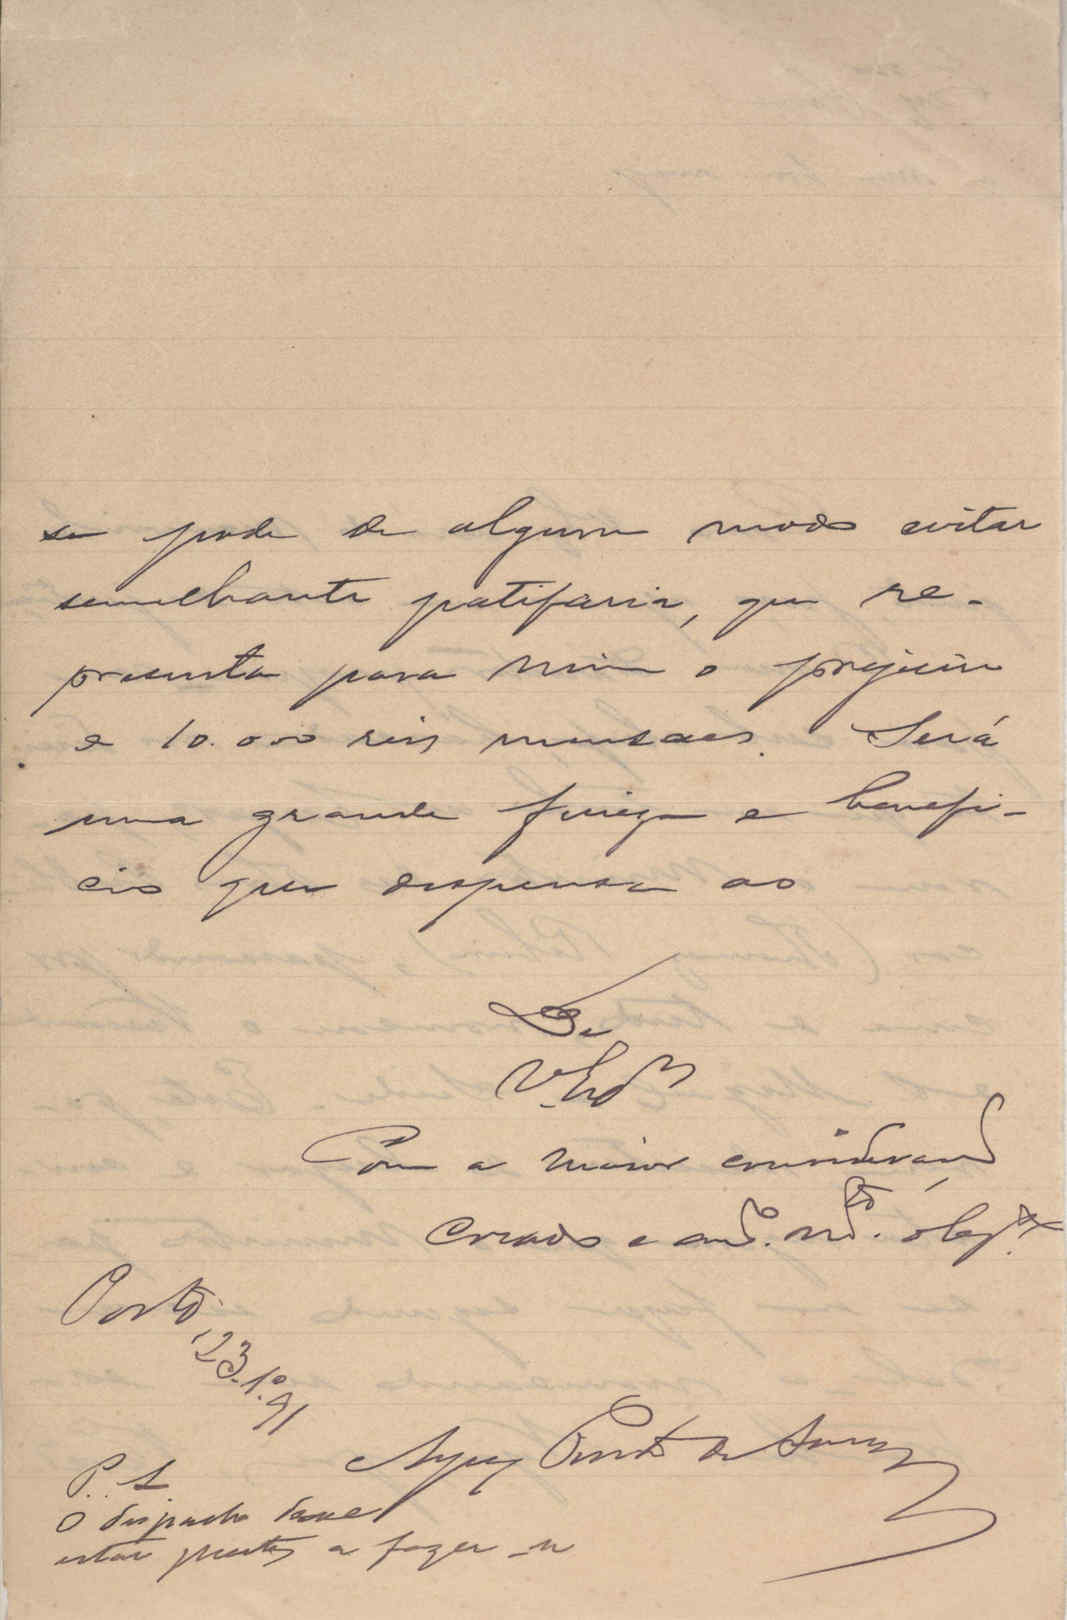 se pode de algum modo evitar
semelhante patifaria, que re-
presenta para mim o prejuizo
e 10.000 reis mensaes. Será
uma grande fineza e benefi-
cio que dispensa ao
De
V. Exª
Com a maior consideração
Creado e amº. mtº. obgº.
Porto
23.1º.91
Pinto de Souza
P. S.
O despacho deve
estar prestes a fazer-se